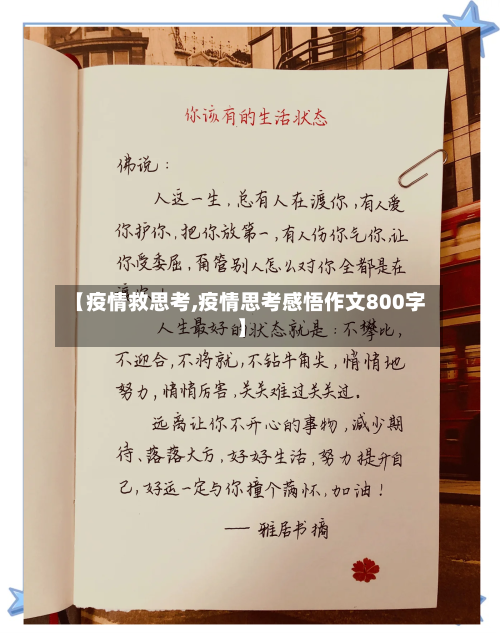 你该有的生活状态
佛说：
人这一生，总有人在渡你，有人爱
你护你，把你放第一，有人伤你气你，让
你受委屈，甭管别人怎么对你全都是在
【疫情救思考,疫情思考感悟作文800字
】
人生最好的状态就是：不攀比，
不迎合，不将就，不钻牛角尖，悄悄地
努力，悄悄厉害，关关难过关关过。
远离让你不开心的事物，减少期
待、落落大方，好好生活，努力提升自
己，好运一定与你撞个满怀，加油！
—— 雅居书摘